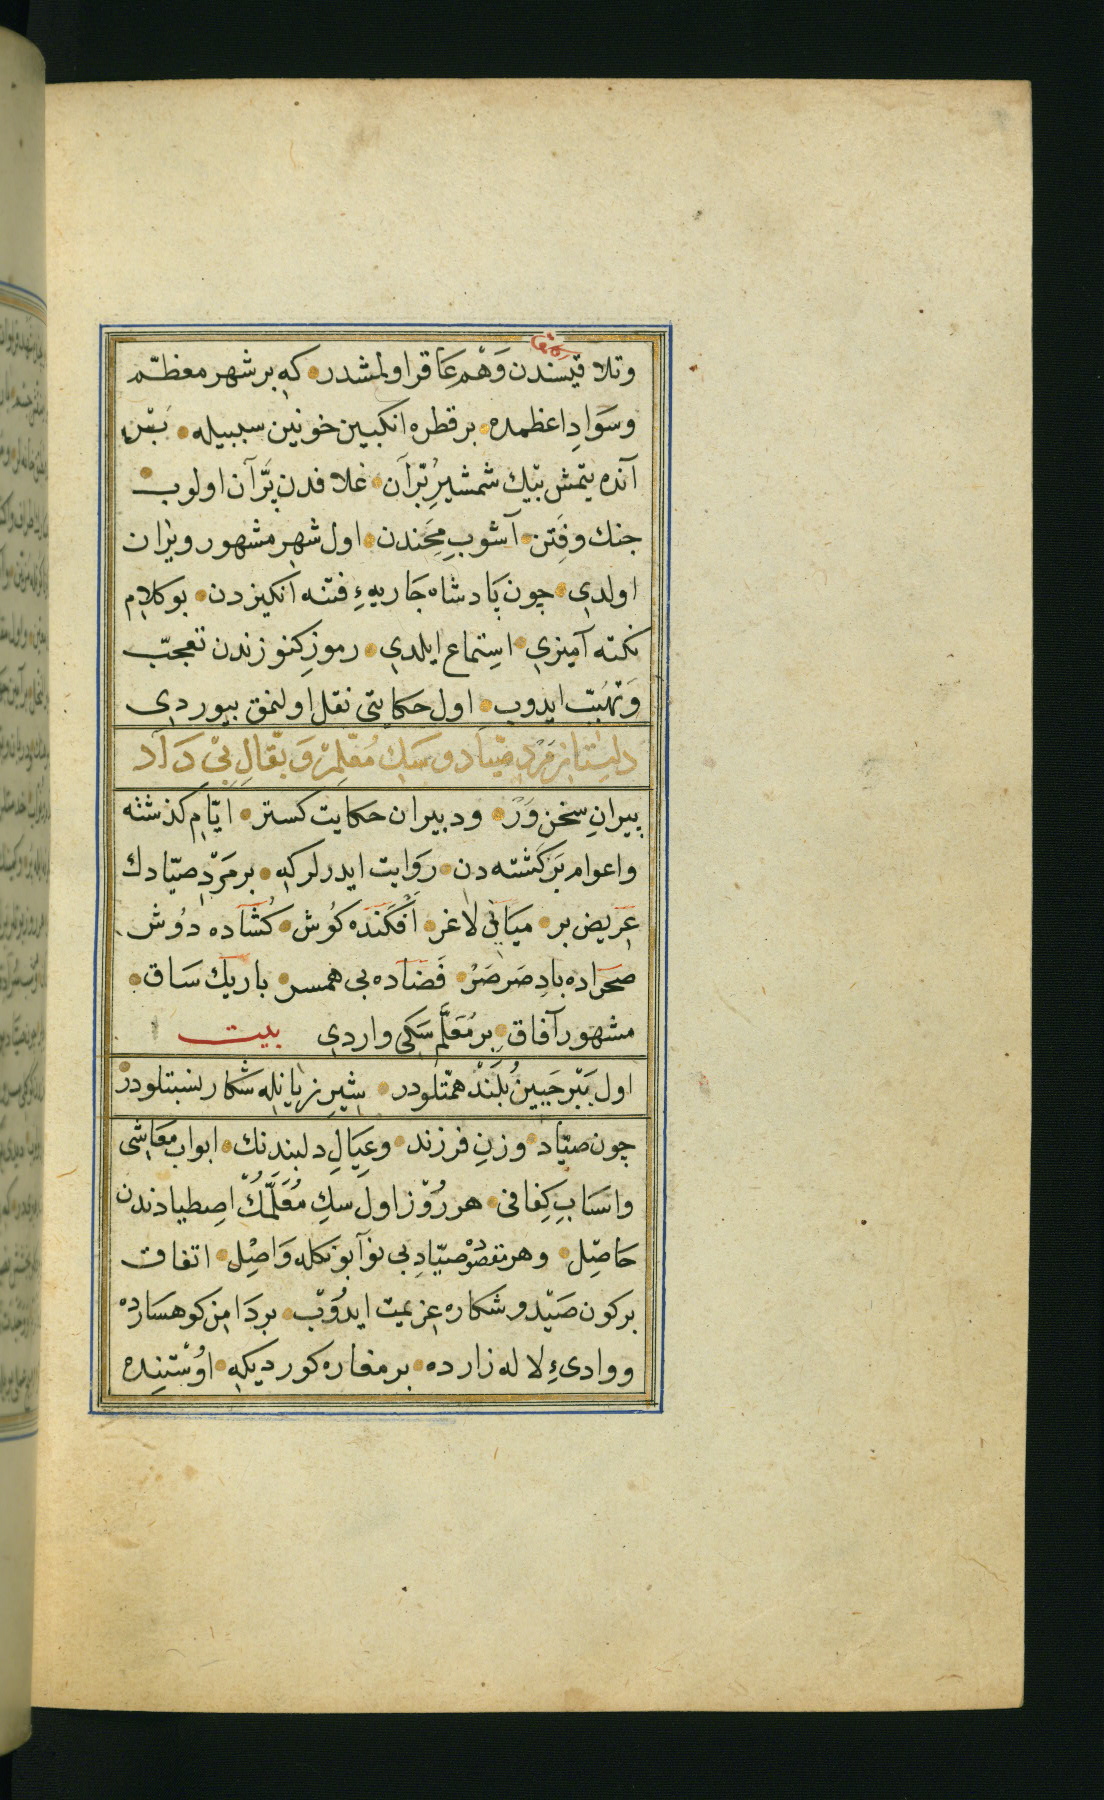 وتلاقیسندن وَهْم عَاقر اولمشدر کهِ بر شهر معظّم
وسَوَادِ اعظمده بر قطره انکبین خونین سببیله بتس
آنده یتمش بیك شمشیرِ برّان غلافدن پرّان اولوب
جنك وفِتن آشوبِ مِحَندن اول شهرِ مشهور ویران
اولدی چون پادشاه جَاریهءِ فتنه انکیزدن بو کلام
نکته آمیزی استِماع ایلدی رموزِ کنوزندن تعجّب
وَتهُیّب ایدوب اول حکایتی نقل اولنمق بیوردی
داستان مَرْدِ صیّاد و سَكِ مُعَلَّمْ وَ بَقّالِ بیْ دَاد
پیرانِ سخن وَرْ ودبیران حکایت کستر ایّامِ کذشته
واعوام بَرکَشته دن رَوَایت ایدرلر کهِ بر مَرْدِ صیّادك
عِریض بر میَانی لاغر اَفْکَنده کوُش کُشاده دوُش
صحراده بادِ صَرصَرْ فَضاده بی همسر باریك سَاق
مشهور آفاق بر مُعَلَّم سَکی واردی بیت
اول بَبْر جَبینْ بُلَنْد همّتلودر شیرِ زیانله شکار نسبتلودر
چون صیّاد وزنِ فرزند وعِیَالِ دلبندنك ابواب مَعَاشی
واسبَابِ کِفافی هر رُوْز اول سَكِ مُعَلَّمكُ اِصطیادندن
حَاصِل وهر مقصوْد صیّادِ بی نوآ بو نکله وَاصِل اتفاق
بر کون صَیْد و شکاره عزیمت ایدُوَبْ بر دَامن کوهسَارده
ووادیءِ لاله زارده بر مغاره کوردیکهِ اوُسْتِنده